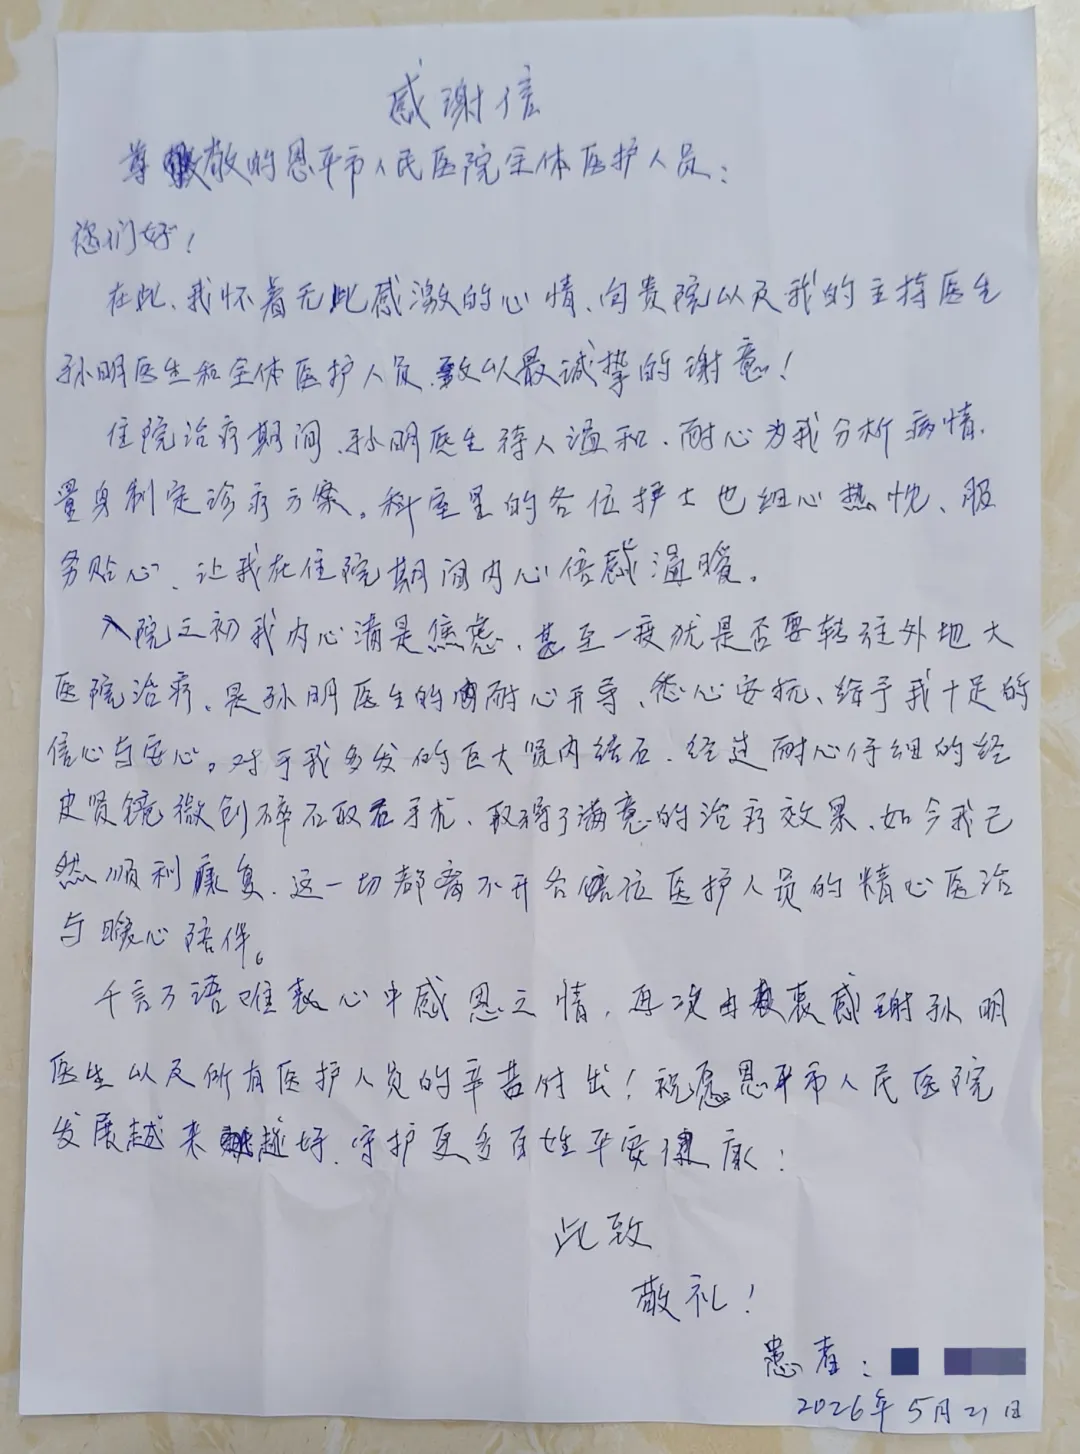 感谢信
尊敬的恩平市人民医院全体医护人员：
您们好！
在此、我怀着无比感激的心情、向贵院以及我的主持医生
孙明医生和全体医护人员、致以最诚挚的谢意！
住院治疗期间、孙明医生待人温和、耐心为我分析病情、
量身制定诊疗方案。科室里的各位护士也细心热忱、服
务贴心、让我在住院期间内心倍感温暖。
入院之初我内心满是焦虑、甚至一度犹是否要转往外地大
医院治疗、是孙明医生的耐心开导、悉心安抚、给予我十足的
信心与安心。对于我多发的巨大肾内结石、经过耐心仔细的经
皮肾镜微创碎石取石手术、取得了满意的治疗效果、如今我已
然顺利康复、这一切都离不开各位医护人员的精心医治
与暖心陪伴。
千言万语难表心中感恩之情，再次由衷感谢孙明
医生以及所有医护人员的辛苦付出！祝愿恩平市人民医院
发展越来越好、守护更多百姓平安健康：
此致
敬礼！
患者：
2026年5月21日